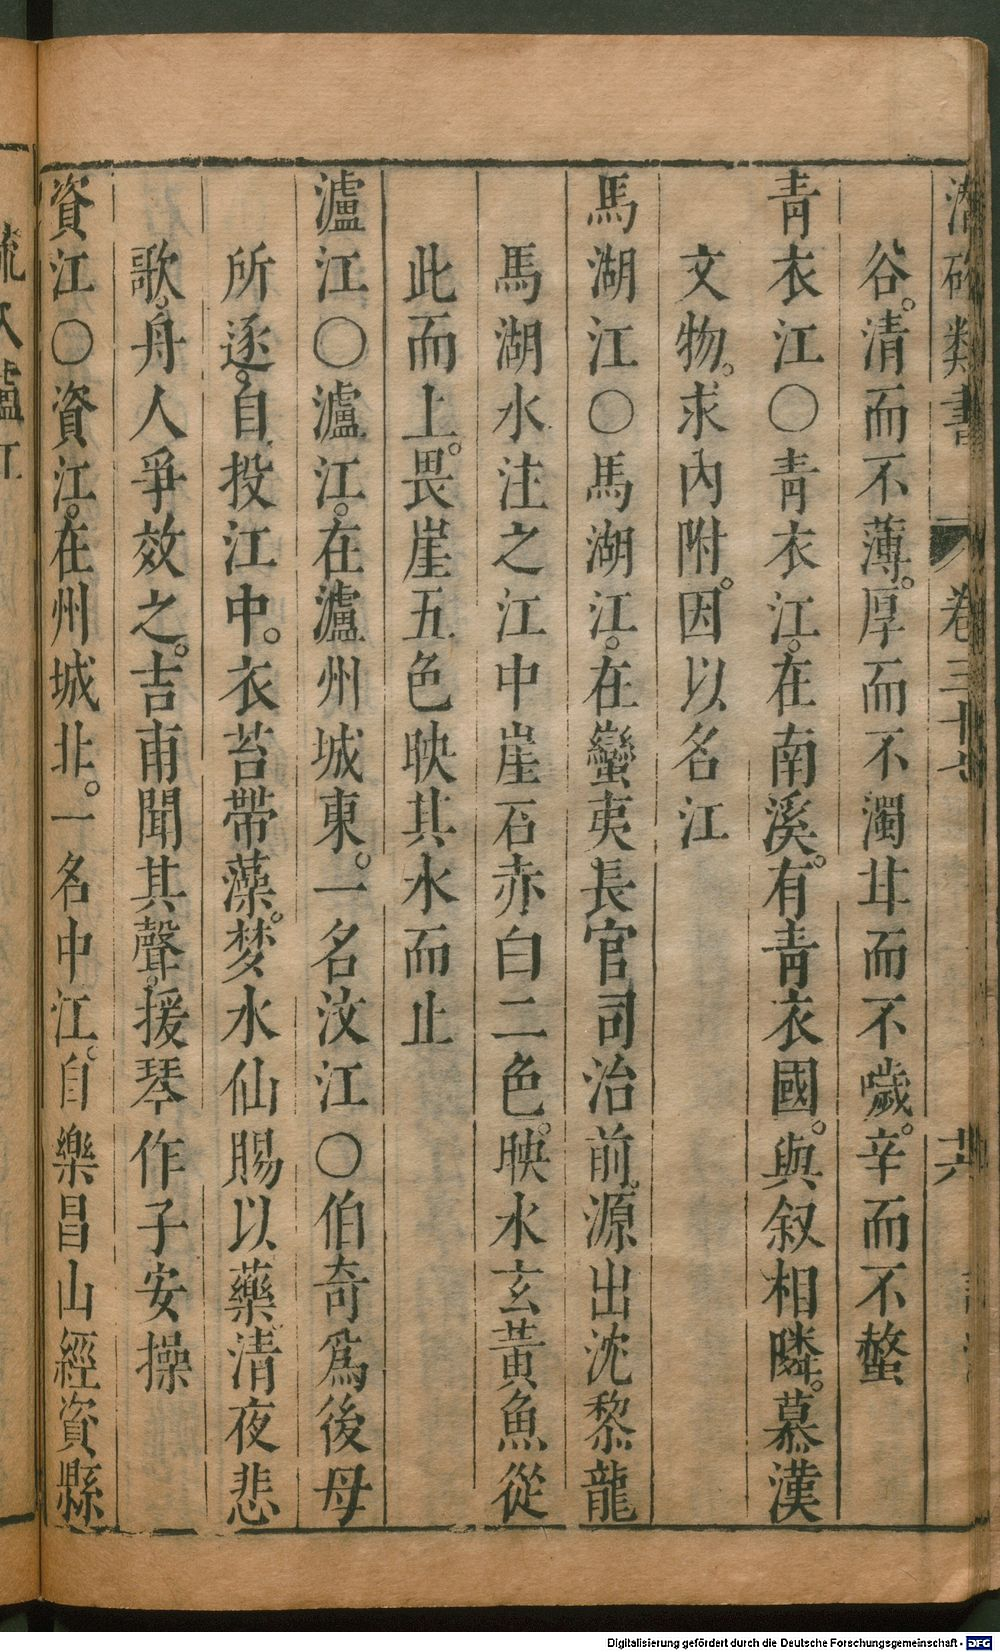 潛確類書 卷三十七
谷。清而不薄。厚而不濁。甘而不噦。辛而不螫
青衣江〇青衣江。在南溪。有青衣國。與叙相隣。慕漢
文物。求內附。因以名江
馬湖江〇馬湖江。在蠻夷長官司治前。源出沈黎龍
馬湖水注之江中崖石赤白二色。映水玄黃魚從
此而上。畏崖五色映其水而止
瀘江〇瀘江。在瀘州城東。一名汶江〇伯奇爲後母
所逐。自投江中。衣苔帶藻。梦水仙賜以藥清夜悲
歌。舟人爭效之。吉甫聞其聲。援琴作子安操
資江〇資江。在州城北。一名中江。自樂昌山經資縣
Digitalisierung gefördert durch die Deutsche Forschungsgemeinschaft - DFG